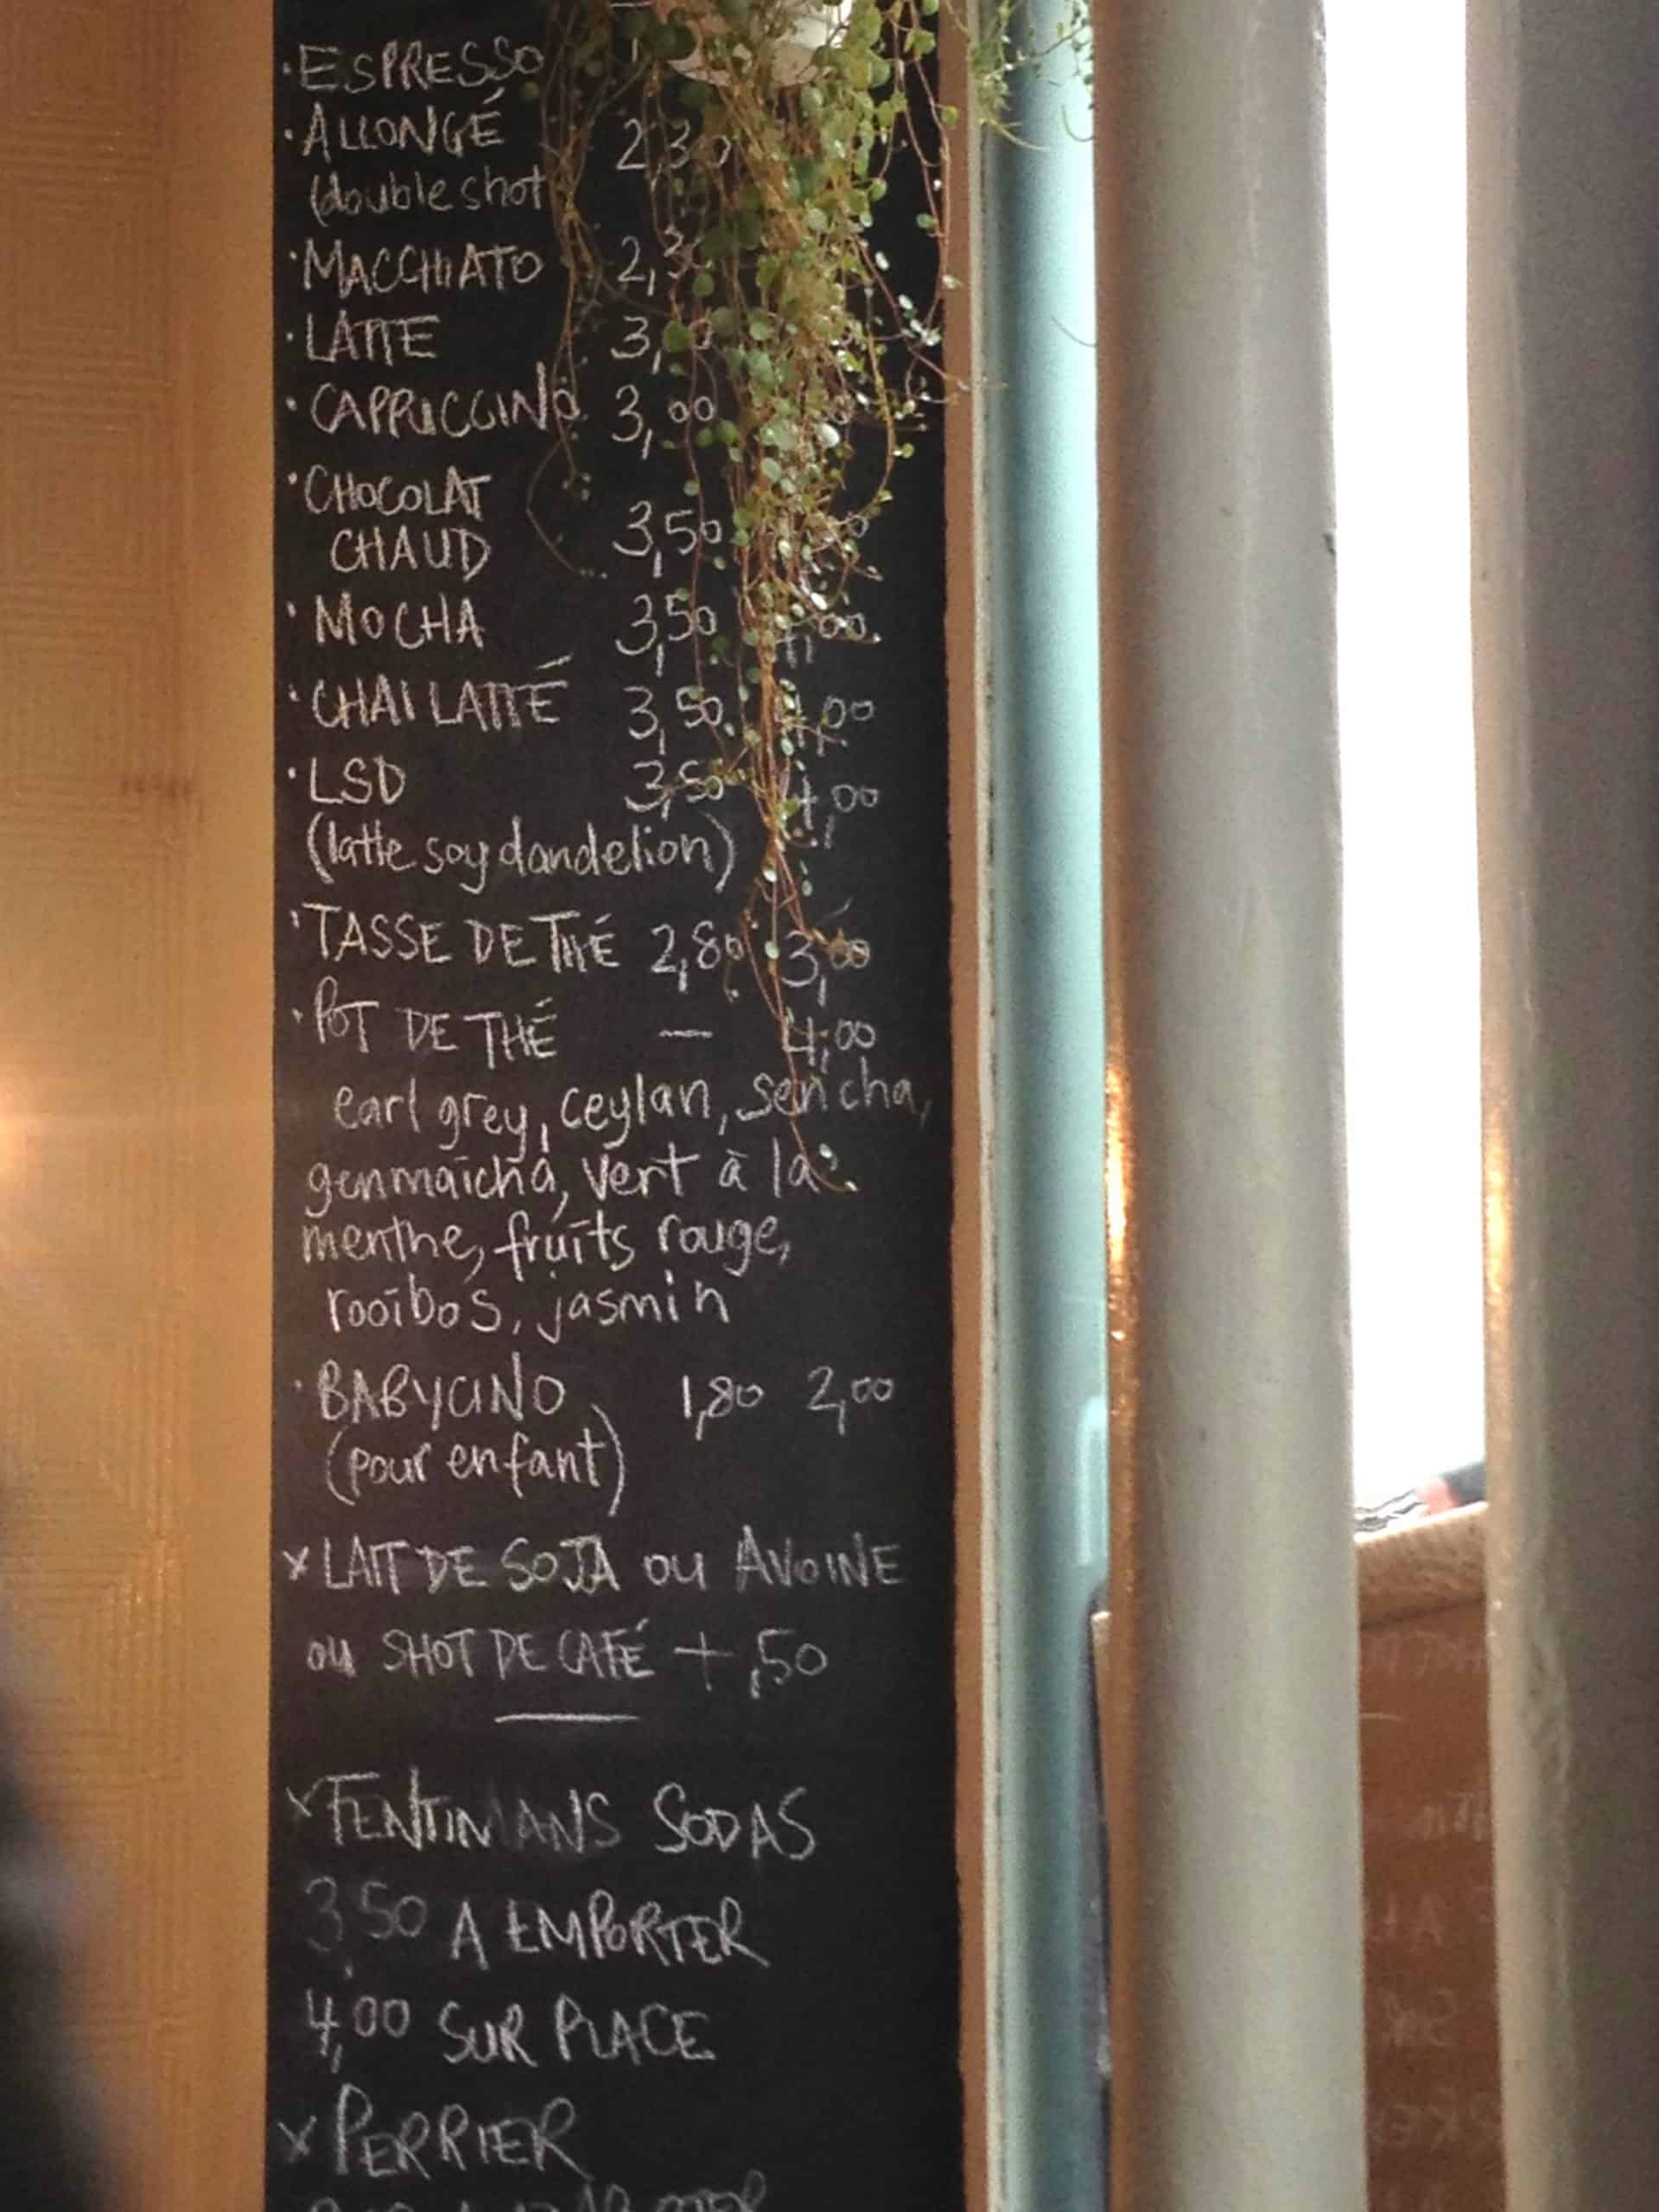 · ESPRESSO
· ALLONGÉ 2,30
(double shot
· MACCHIATO
· LATTE
· CAPPUCCINO 3,00
· CHOCOLAT
CHAUD 3,50
· MOCHA 3,50 4,00
· CHAI LATTÉ 3,50 4,00
· LSD 3,50 4,00
(latte soy dandelion)
· TASSE DE THÉ 2,80 3,00
· POT DE THÉ — 4,00
earl grey, ceylan, sencha,
genmaïcha, vert à la
menthe, fruits rouge,
rooïbos, jasmin
· BABYCINO 1,80 2,00
(pour enfant)
x LAIT DE SOJA ou AVOINE
ou SHOT DE CAFÉ + ,50
x FENTIMANS SODAS
3,50 A EMPORTER
4,00 SUR PLACE
x PERRIER